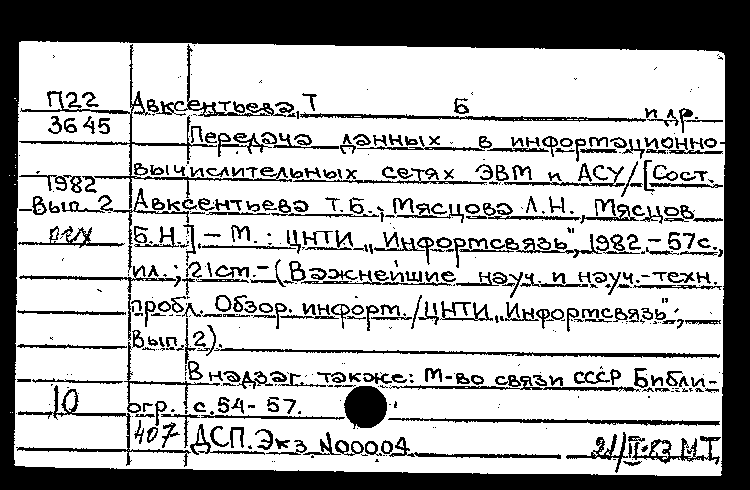 П22 Авксентьева Т Б и др.
3645 Передача данных в информационно-
вычислительных сетях ЭВМ и АСУ/[Сост.
1982
Вып. 2 Авксентьева Т.Б., Мясцова Л.Н., Мясцов
Б.Н.].– М. : ЦНТИ „Информсвязь", 1982.– 57с.,
ил.; 21см.– (Важнейшие науч. и науч.-техн.
пробл. Обзор. информ./ЦНТИ „Информсвязь";
Вып. 2).
В надзаг. также: М-во связи СССР Библи-
10 огр. с.54- 57.
407 ДСП. Экз. N00004 21/II-83 М.Т.